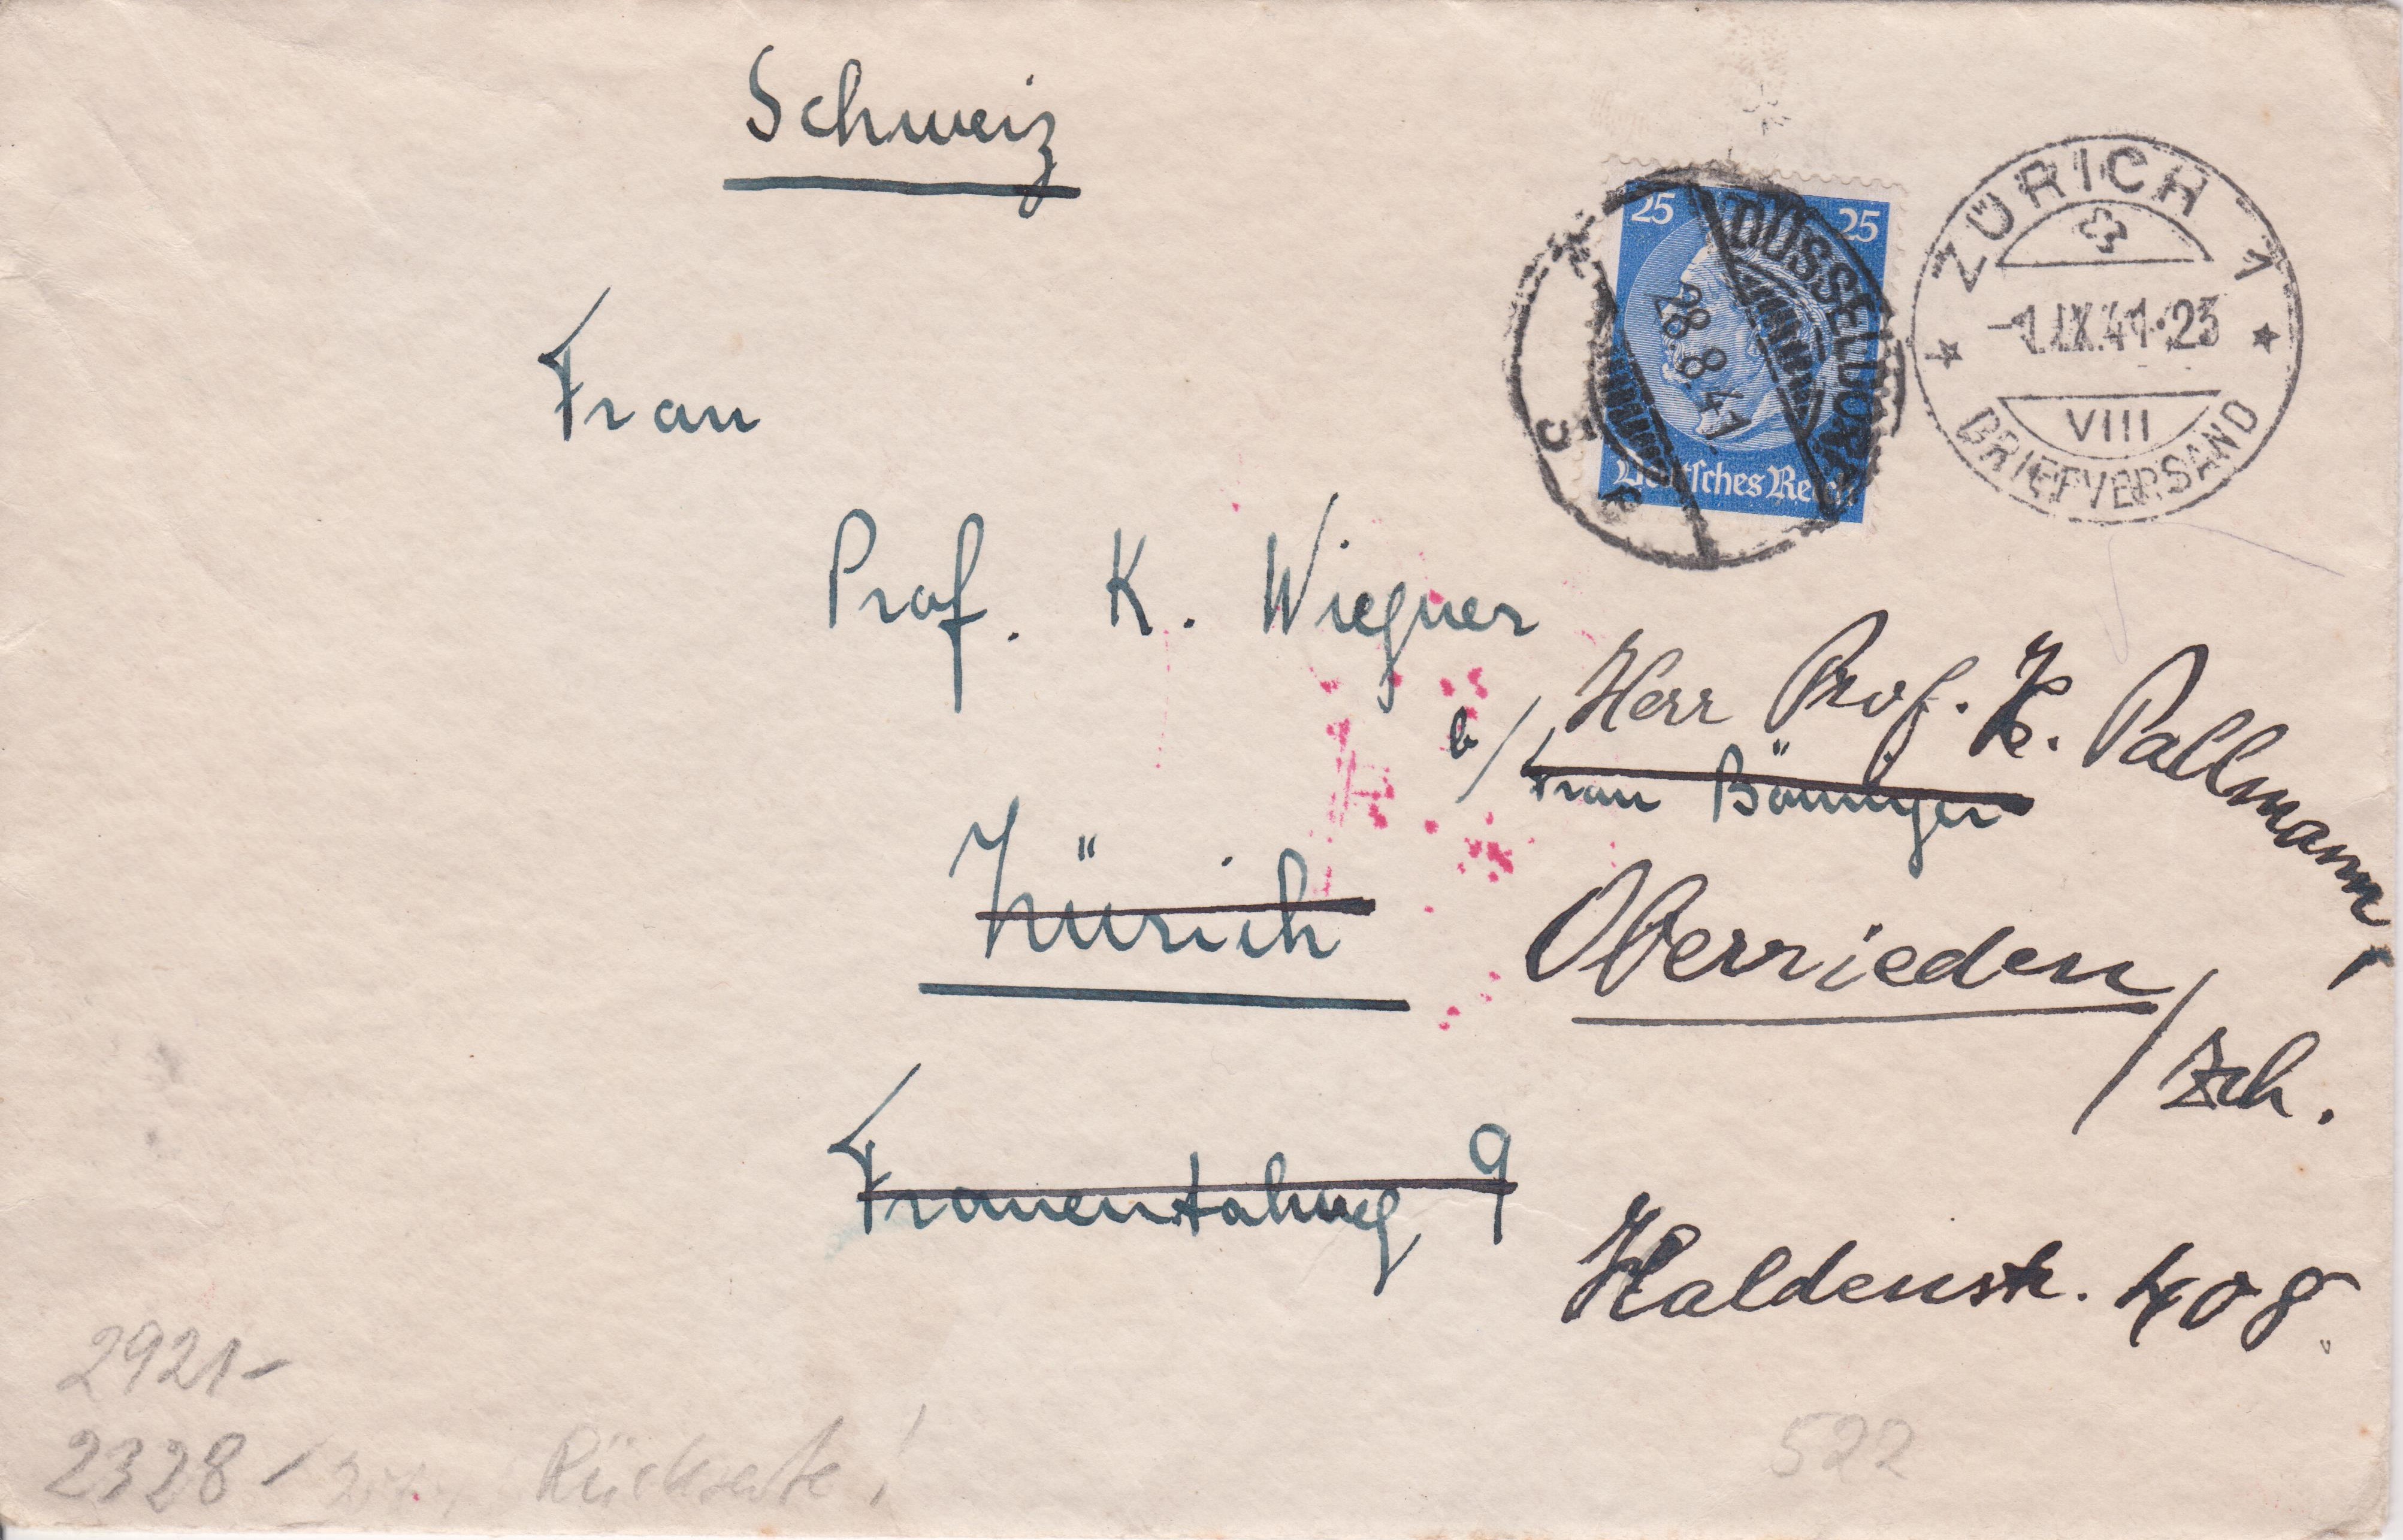 Schweiz
25 25
Deutsches Reich
DÜSSELDORF
28.8.41
ZÜRICH 1
-1.IX.41-23
VIII
BRIEFVERSAND
Frau
Prof. K. Wiegner
b/ Herr Prof. H. Pallmann,
Frau Böninger
Zürich
Oberrieden
/ Zch.
Frauentalweg 9
Haldenstr. 408
2921-
2328-
Rückseite!
522